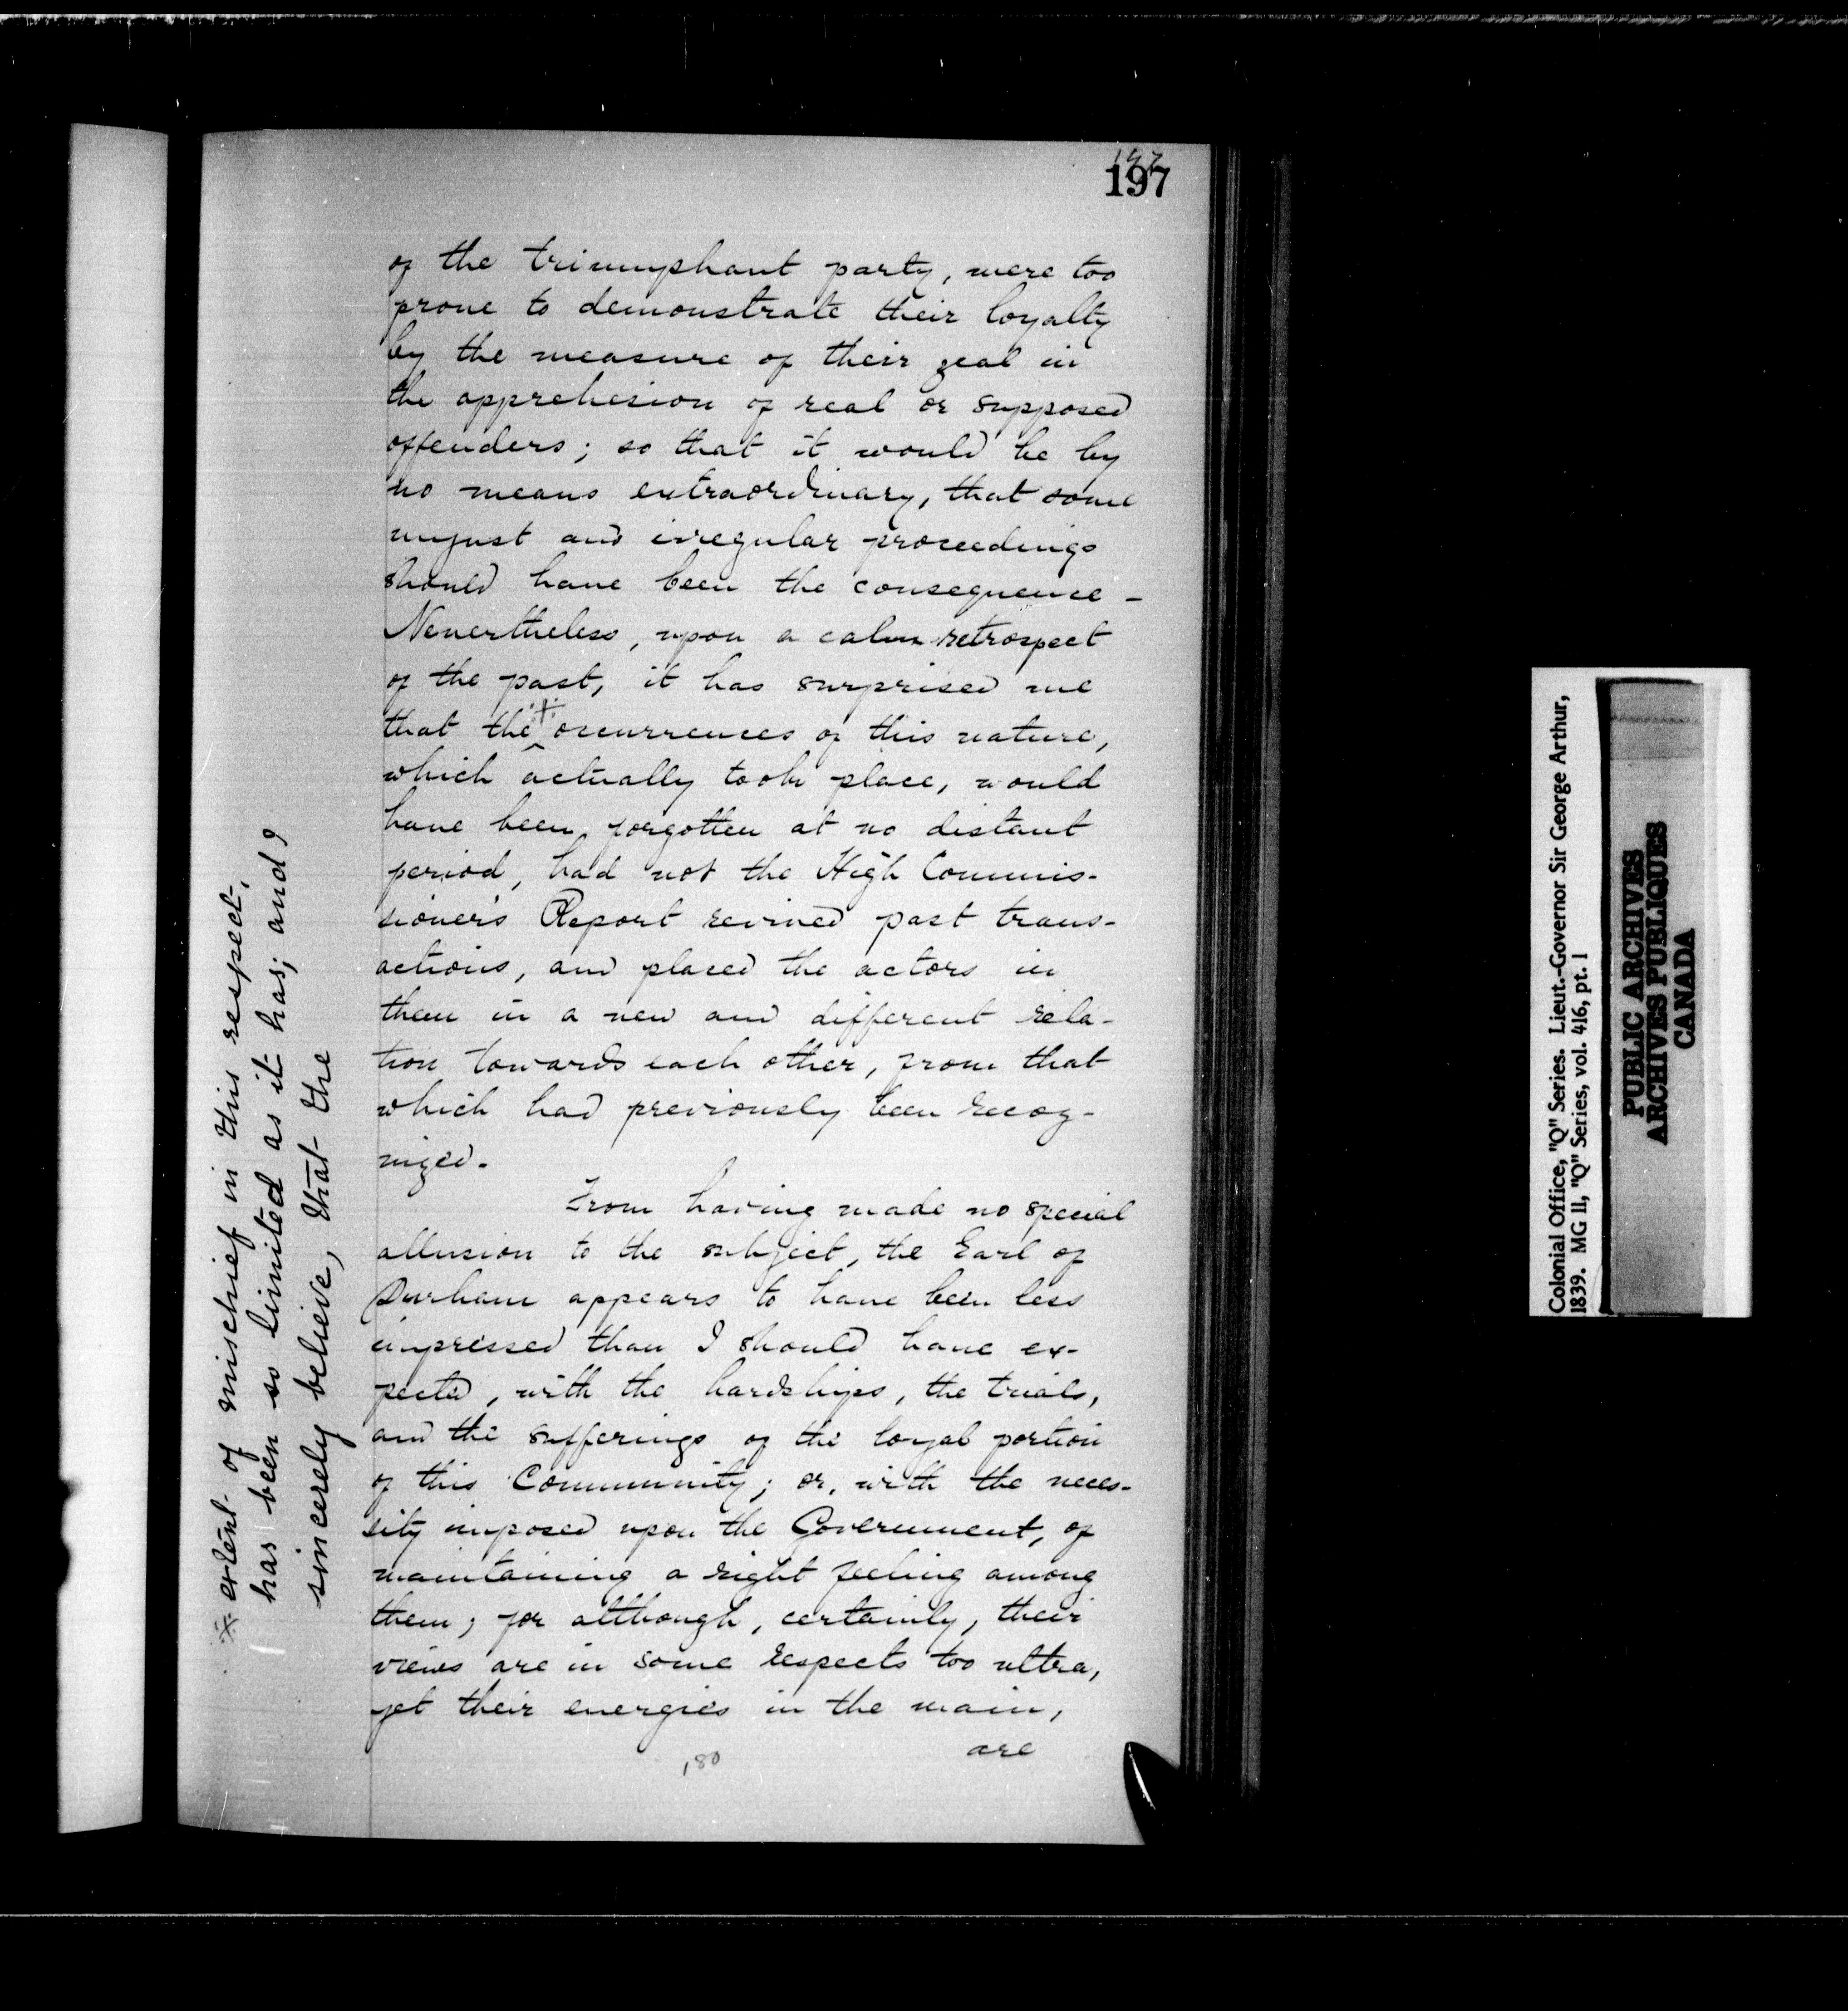 197
of the triumphant party, were too
prone to demonstrate their loyalty
by the measure of their zeal in
the apprehesion of real or supposed
offenders; so that it would be by
no means extraordinary, that some
unjust and irregular proceedings
should have been the consequence -
Nevertheless, upon a calm retrospect
of the past, it has surprised me
that the ※ occurrences of this nature,
which actually took place, would
have been forgotten at no distant
period, had not the High Commis-
sioner's Report revived past trans-
actions, and placed the actors in
them in a new and different rela-
tion towards each other, from that
which had previously been recog-
nized.
From having made no special
allusion to the subject, the Earl of
Durham appears to have been less
impressed than I should have ex-
pected, with the hardships, the trials,
and the sufferings of the loyal portion
of this Community; or, with the neces-
sity imposed upon the Government, of
maintaining a right feeling among
them; for although, certainly, their
views are in some respects too ultra,
yet their energies in the main,
are
180
※ extent of mischief in this respect,
has been so limited as it has; and
sincerely believe, that the
Colonial Office, "Q" Series. Lieut.-Governor Sir George Arthur,
1839. MG 11, "Q" Series, vol. 416, pt. 1
PUBLIC ARCHIVES
ARCHIVES PUBLIQUES
CANADA